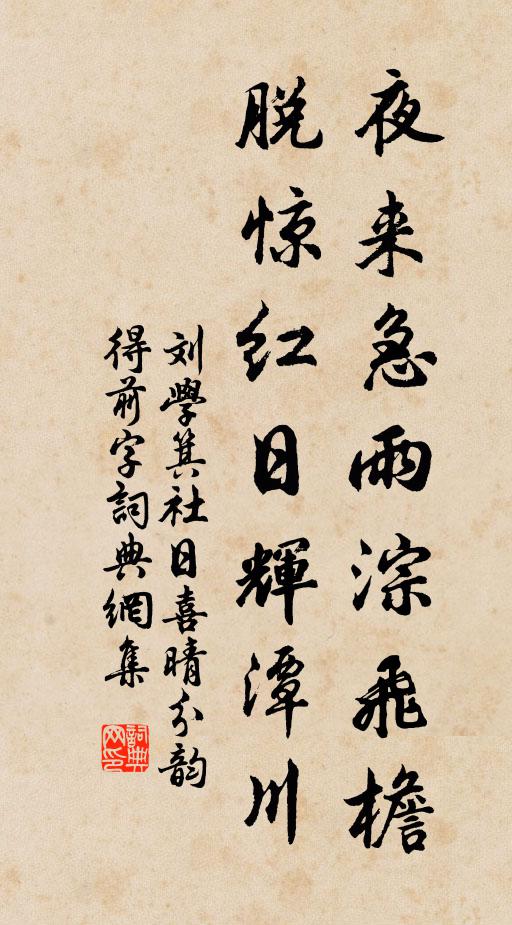 夜来急雨淙飛檐
脱惊红日輝潭川
刘學箕社日喜晴分韵
得前字詞典網集
詞典网印